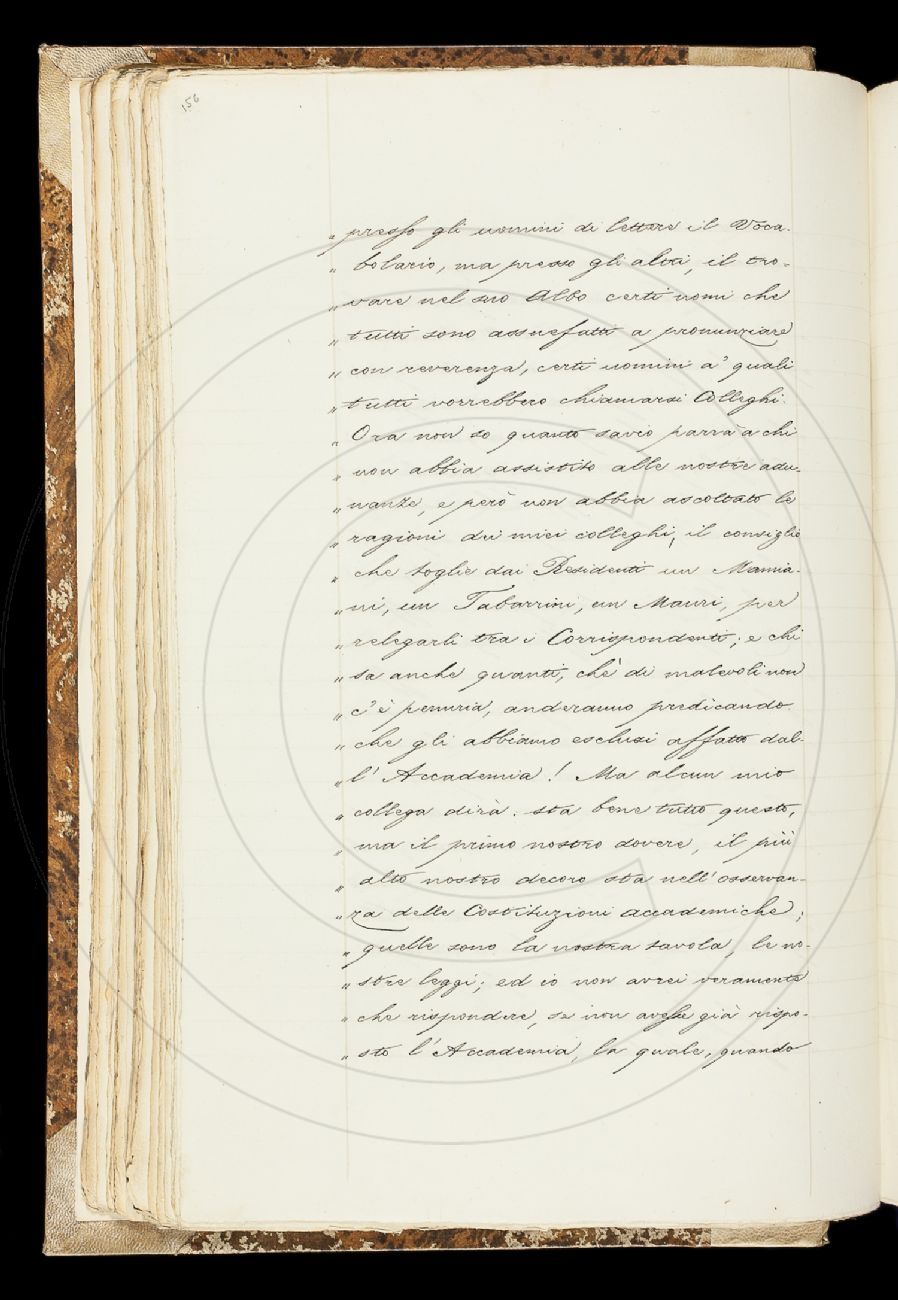 156
" presso gli uomini di lettere il Voca-
" bolario, ma presso gli altri, il tro-
" vare nel suo Albo certi nomi che
" tutti sono assuefatti a pronunziare
" con reverenza, certi uomini a' quali
" tutti vorrebbero chiamarsi Colleghi.
" Ora non so quanto savio parrà a chi
" non abbia assistito alle nostre adu-
" nanze, e però non abbia ascoltato le
" ragioni dei miei colleghi, il consiglio
" che toglie dai Residenti un Mamia-
" ni, un Tabarrini, un Mauri, per
" relegarli tra i Corrispondenti; e chi
" sa anche quanti, chè di malevoli non
" c'è penuria, anderanno predicando
" che gli abbiamo esclusi affatto dal-
" l'Accademia! Ma alcun mio
" collega dirà: sta bene tutto questo,
" ma il primo nostro dovere, il più
" alto nostro decoro sta nell'osservan-
" za delle Costituzioni accademiche;
" quelle sono la nostra tavola, le no-
" stre leggi; ed io non avrei veramente
" che rispondere, se non avesse già rispo-
" sto l'Accademia, la quale, quando